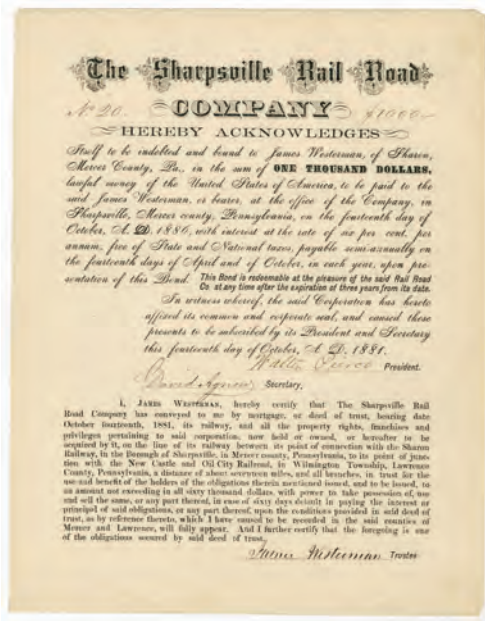 The Sharpsville Rail Road
No 20. COMPANY $1000
HEREBY ACKNOWLEDGES
Itself to be indebted and bound to James Westerman, of Sharon,
Mercer County, Pa., in the sum of ONE THOUSAND DOLLARS,
lawful money of the United States of America, to be paid to the
said James Westerman, or bearer, at the office of the Company, in
Sharpsville, Mercer county, Pennsylvania, on the fourteenth day of
October, A. D. 1886, with interest at the rate of six per cent. per
annum, free of State and National taxes, payable semi-annually on
the fourteenth days of April and of October, in each year, upon pre-
sentation of this Bond. This Bond is redeemable at the pleasure of the said Rail Road
Co. at any time after the expiration of three years from its date.
In witness whereof, the said Corporation has hereto
affixed its common and corporate seal, and caused these
presents to be subscribed by its President and Secretary
this fourteenth day of October, A. D. 1881.
Walter Pierce President.
David Agnew Secretary,
I, JAMES WESTERMAN, hereby certify that The Sharpsville Rail
Road Company has conveyed to me by mortgage, or deed of trust, bearing date
October fourteenth, 1881, its railway, and all the property rights, franchises and
privileges pertaining to said corporation, now held or owned, or hereafter to be
acquired by it, on the line of its railway between its point of connection with the Sharon
Railway, in the Borough of Sharpsville, in Mercer county, Pennsylvania, to its point of junc-
tion with the New Castle and Oil City Railroad, in Wilmington Township, Lawrence
County, Pennsylvania, a distance of about seventeen miles, and all branches, in trust for the
use and benefit of the holders of the obligations therein mentioned issued, and to be issued, to
an amount not exceeding in all sixty thousand dollars, with power to take possession of, use
and sell the same, or any part thereof, in case of sixty days default in paying the interest or
principal of said obligations, or any part thereof, upon the conditions provided in said deed of
trust, as by reference thereto, which I have caused to be recorded in the said counties of
Mercer and Lawrence, will fully appear. And I further certify that the foregoing is one
of the obligations secured by said deed of trust.
James Westerman Trustee